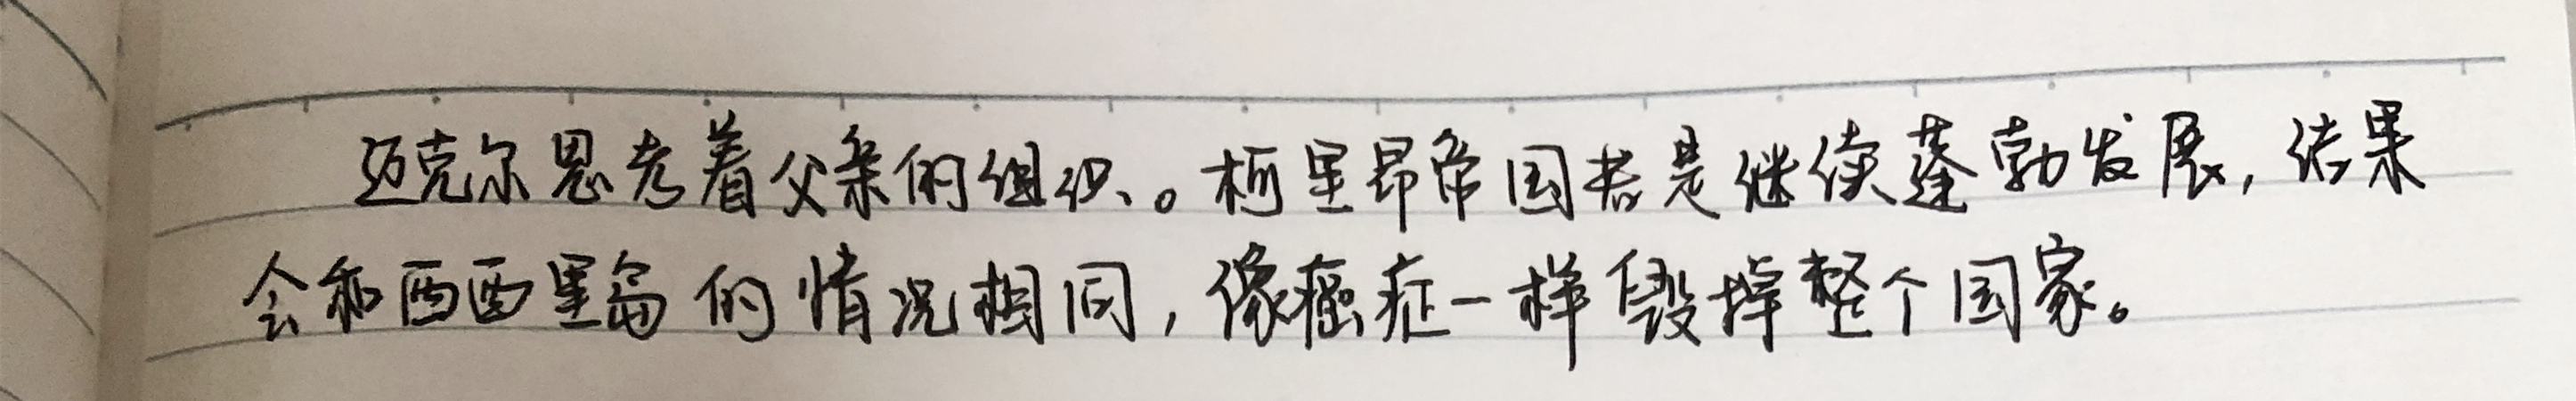 迈克尔思考着父亲的组织。柯里昂帝国若是继续蓬勃发展，结果
会和西西里岛的情况相同，像癌症一样毁掉整个国家。